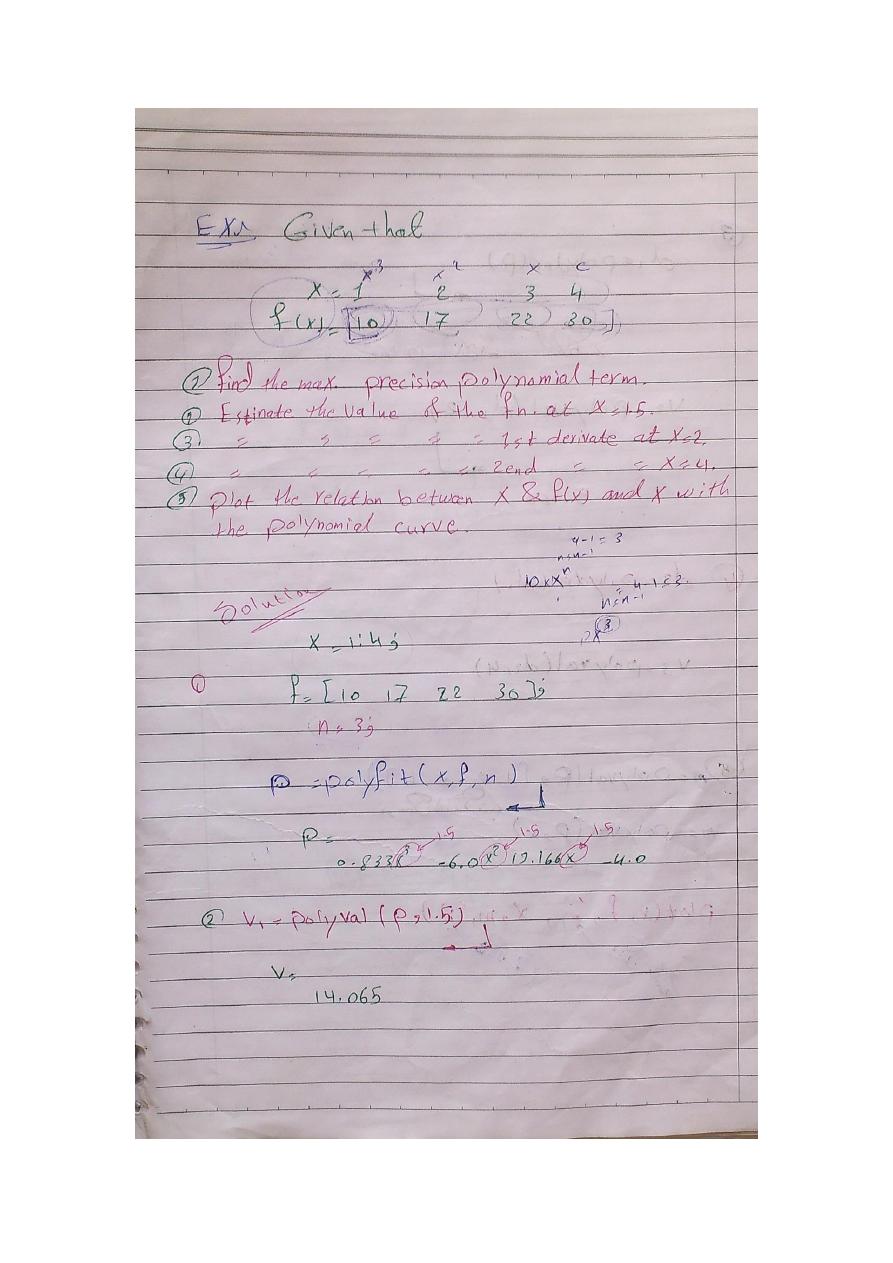 Ex:
Given that
x³ x² x c
X = 1 2 3 4
f(x) = [10 17 22 30]
① find the max. precision polynomial term.
② Estinate the value of the fn. at X=1.5.
③ = = = = = 1st derivate at X=2.
④ = = = = = 2end = = X=4.
⑤ plot the relation between X & f(x) and X with
the polynomial curve.
4-1=3
n=n-1
10xXⁿ
= 4-1=3
n=n-1
Solution
X=1:4;
① f=[10 17 22 30];
n=3;
p=polyfit(x,f,n)
p=
1.5 1.5 1.5
0.833x³ -6.0x² 19.166x -4.0
② V₁=polyval(p,1.5)
V=
14.065